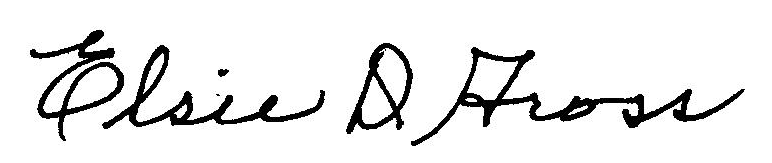 Elsie D Gross